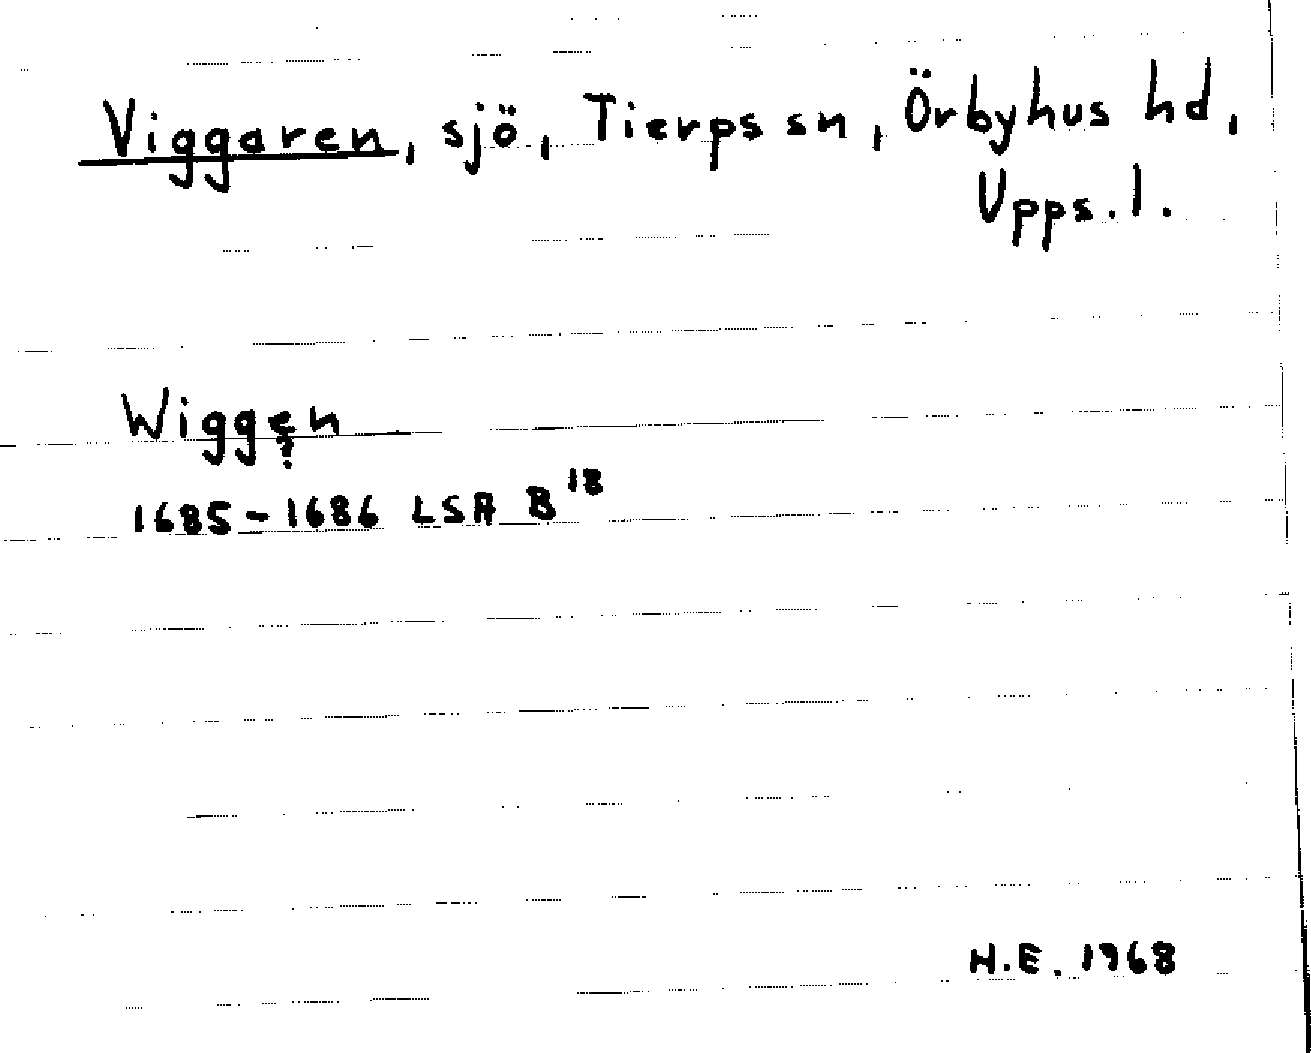 Viggaren, sjö, Tierps sn, Örbyhus hd,
Upps. l.
Wiggen
?
1685-1686 LSA B¹⁸
H.E. 1968